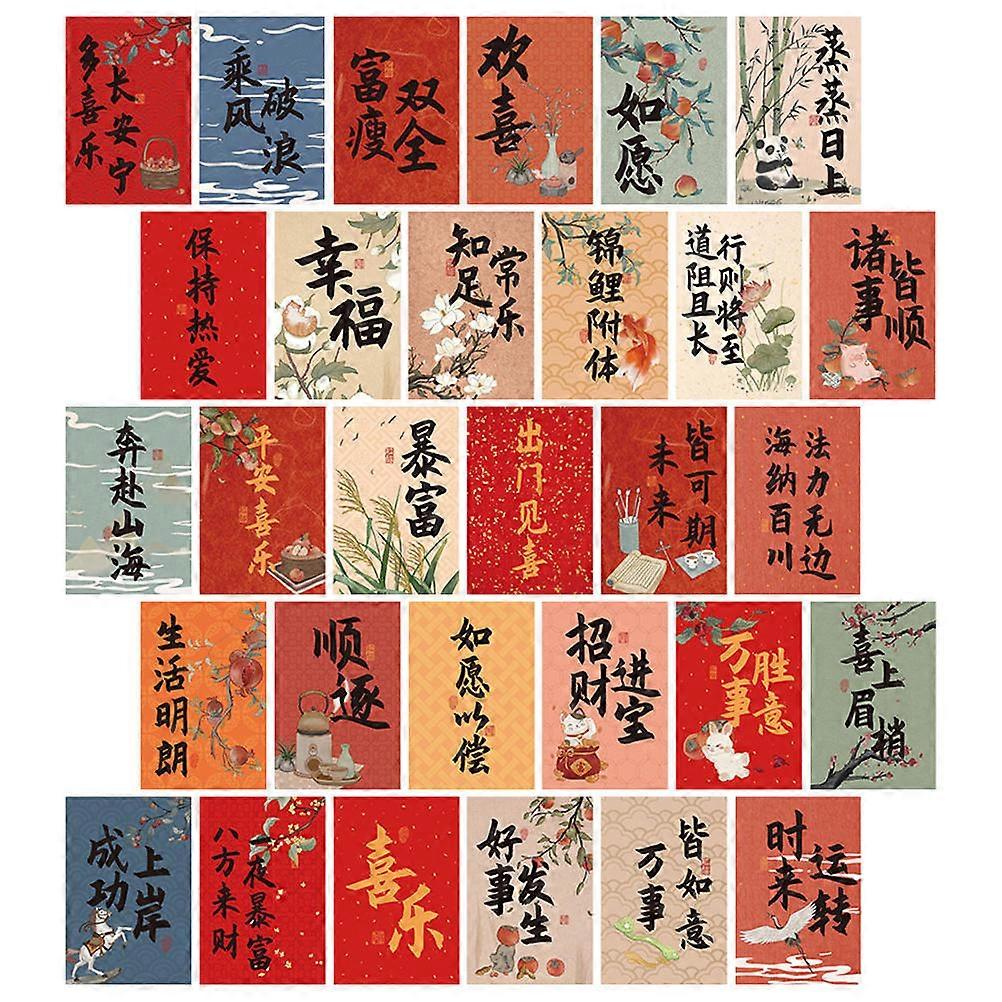 多喜乐
长安宁
乘风
破浪
富瘦
双全
欢喜
如愿
蒸蒸日上
保持热爱
幸福
知足
常乐
锦鲤附体
道阻且长
行则将至
诸事
皆顺
奔赴山海
平安喜乐
暴富
出门见喜
未来
皆可期
海纳百川
法力无边
生活明朗
顺
逐
如愿以偿
招财
进宝
万事
胜意
喜上
眉梢
成功
上岸
八方来财
一夜暴富
喜乐
好事
发生
万事
皆如意
时来
运转